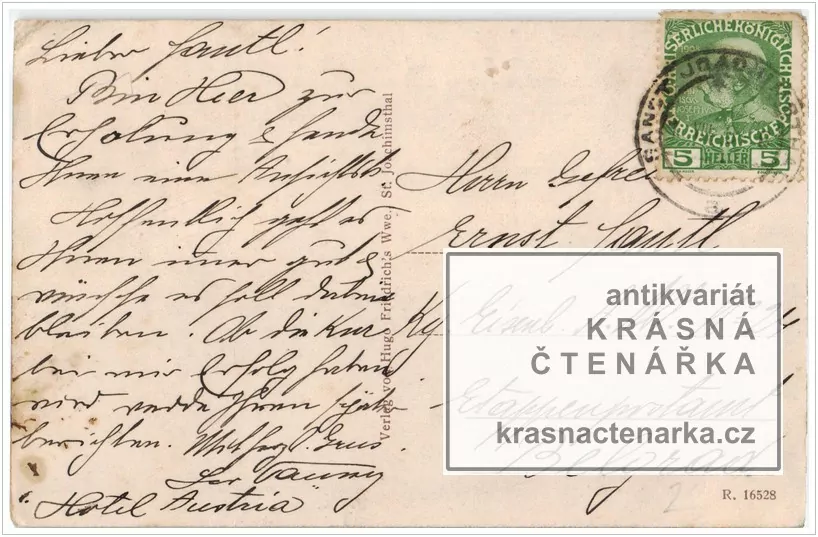 Lieber Hantl!
Bin Hier zur
Erholung & sende
Ihnen eine Ansichtsk.
Hoffentlich geht es
Ihnen imer gut &
wünsche es soll dabei
bleiben. Ob die Kur
bei mir Erfolg haben
wird werde Ihnen später
berichten. Mit herzl. Grus
Hotel Austria
Verlag von Hugo Friedrich's Wwe., St. Joachimsthal
KAISERLICHE KÖNIGLICHE
ÖSTERREICHISCHE
5 HELLER 5
SANKT JOACH
Herrn Gefrei
Ernst Hantl
Eisenb.
Etappenpostamt
Belgrad
antikvariát
KRÁSNÁ
ČTENÁŘKA
krasnactenarka.cz
R. 16528